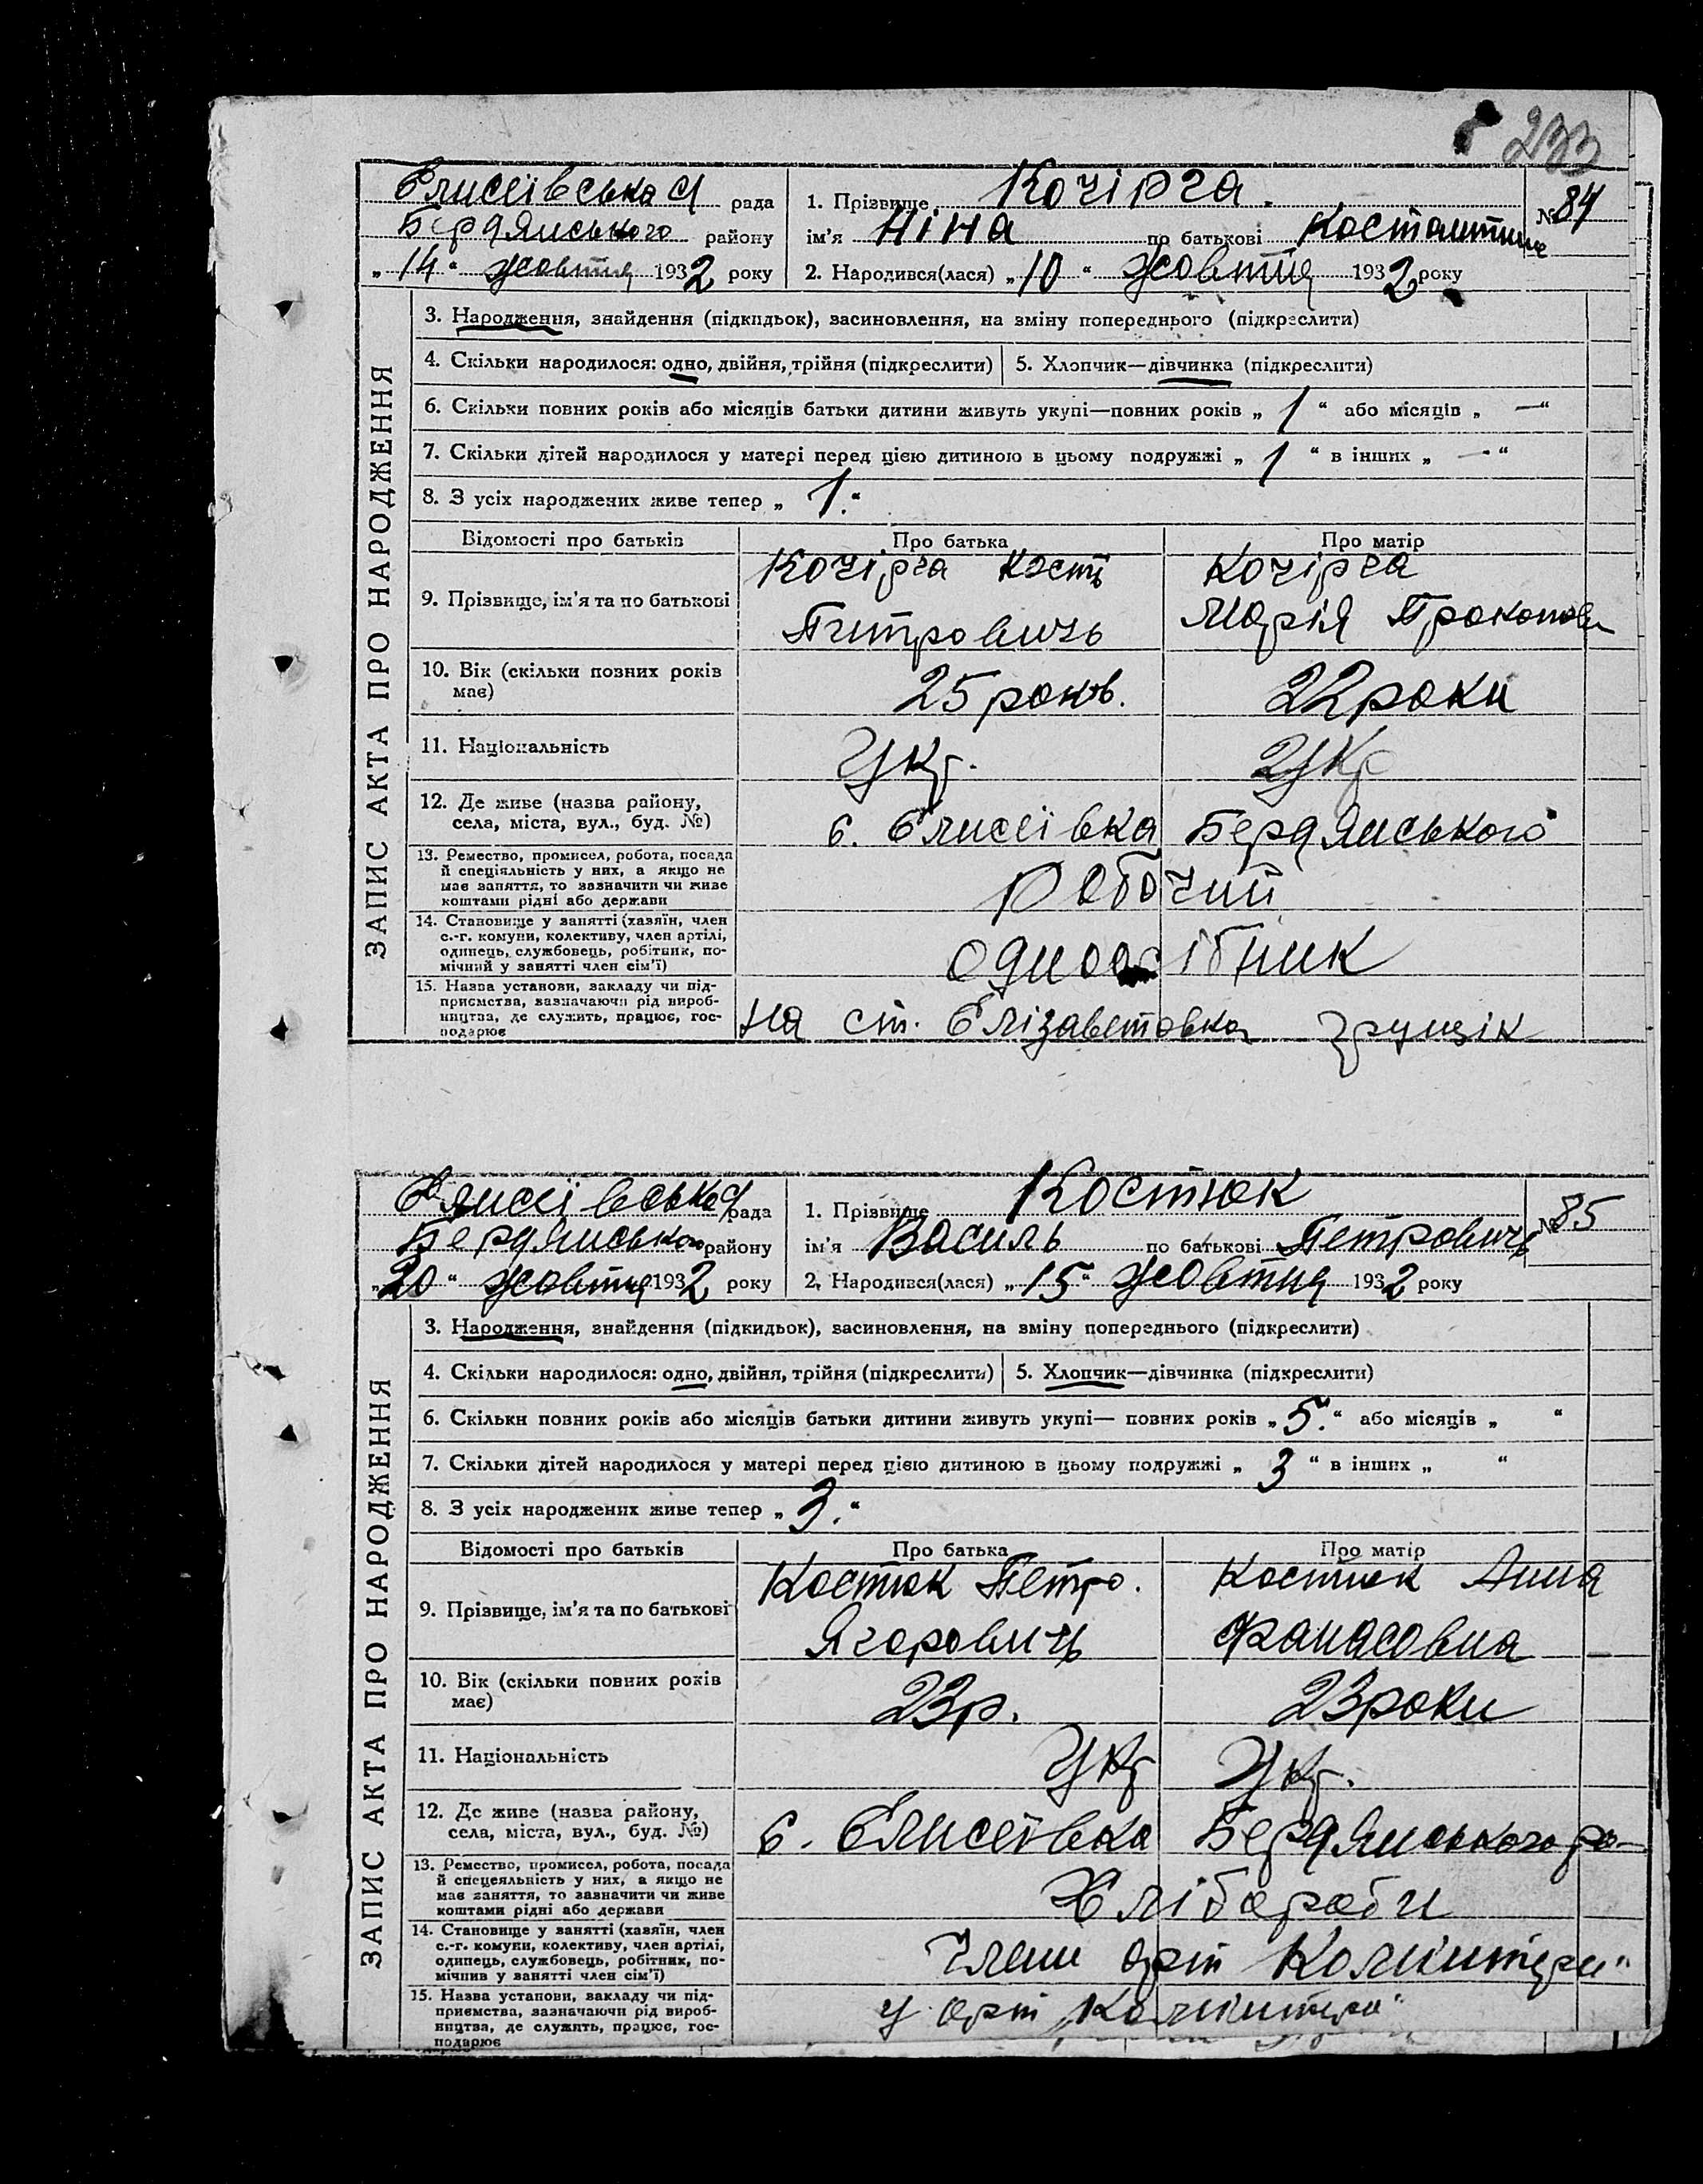 233
Єлисеївська рада
Бердянського району
„14“ жовтня 1932 року
1. Прізвище Кочірга.
№ 84
ім’я Ніна по батькові Костантине
2. Народився(лася) „10“ жовтня 1932 року
ЗАПИС АКТА ПРО НАРОДЖЕННЯ
3. Народження, знайдення (підкидьок), засиновлення, на зміну попереднього (підкреслити)
4. Скільки народилося: одно, двійня, трійня (підкреслити) 5. Хлопчик—дівчинка (підкреслити)
6. Скільки повних років або місяців батьки дитини живуть укупі—повних років „ 1 “ або місяців „ — “
7. Скільки дітей народилося у матері перед цією дитиною в цьому подружжі „ 1 “ в інших „ — “
8. З усіх народжених живе тепер „ 1. “
Відомості про батьків Про батька Про матір
9. Прізвище, ім’я та по батькові
Кочірга Кость
Питровичь
Кочірга
Марія Прокопов
10. Вік (скільки повних років
має)
25 років. 22 роки
11. Національність Укр. Укр
12. Де живе (назва району,
села, міста, вул., буд. №)
с. Єлисеівка Бердянського
13. Ремество, промисел, робота, посада
й спеціяльність у них, а якщо не
має заняття, то зазначити чи живе
коштами рідні або держави
Рабочий
14. Становище у занятті (хазяїн, член
с.-г. комуни, колективу, член артілі,
одинець, службовець, робітник, по-
мічний у занятті член сім’ї)
одноосібник
15. Назва установи, закладу чи під-
приємства, зазначаючи рід вироб-
ництва, де служить, працює, гос-
подарює
на ст. Єлізаветовка грущік
Єлисеївська рада
Бердянського району
„20“ жовтня 1932 року
1. Прізвище Костюк
№ 85
ім’я Василь по батькові Петровичь
2. Народився(лася) „15“ жовтня 1932 року
ЗАПИС АКТА ПРО НАРОДЖЕННЯ
3. Народження, знайдення (підкидьок), засиновлення, на зміну попереднього (підкреслити)
4. Скільки народилося: одно, двійня, трійня (підкреслити) 5. Хлопчик—дівчинка (підкреслити)
6. Скільки повних років або місяців батьки дитини живуть укупі— повних років „ 5. “ або місяців „ “
7. Скільки дітей народилося у матері перед цією дитиною в цьому подружжі „ 3 “ в інших „ “
8. З усіх народжених живе тепер „ 3. “
Відомості про батьків Про батька Про матір
9. Прізвище, ім’я та по батькові
Костюк Петро.
Ягоровичь
Костюк Анна
Фанасовна
10. Вік (скільки повних років
має)
23 р. 23 роки
11. Національність Укр Укр.
12. Де живе (назва району,
села, міста, вул., буд. №)
с. Єлисеївка Бердянського ра-
13. Ремество, промисел, робота, посада
й спецеяльність у них, а якщо не
має заняття, то зазначити чи живе
коштами рідні або держави
Хлібороби
14. Становище у занятті (хазяїн, член
с.-г. комуни, колективу, член артілі,
одинець, службовець, робітник, по-
мічнив у занятті член сім’ї)
члени арт Комінтерн“
15. Назва установи, закладу чи під-
приємства, зазначаючи рід вироб-
ництва, де служить, працює, гос-
подарює
у арт „Комінтерн“